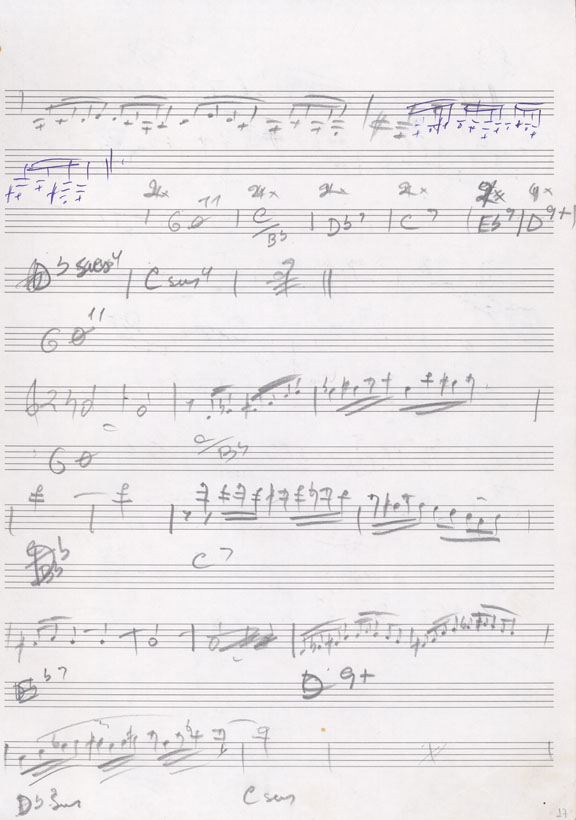 2x 2x 2x 2x 2x 4x
G ø 11 C/Bb Db7 C7 Eb9 D9+
Db sus4 C sus4
G ø 11
G ø C/Bb
Db C7
b7 D 9+
Db sus C sus
27